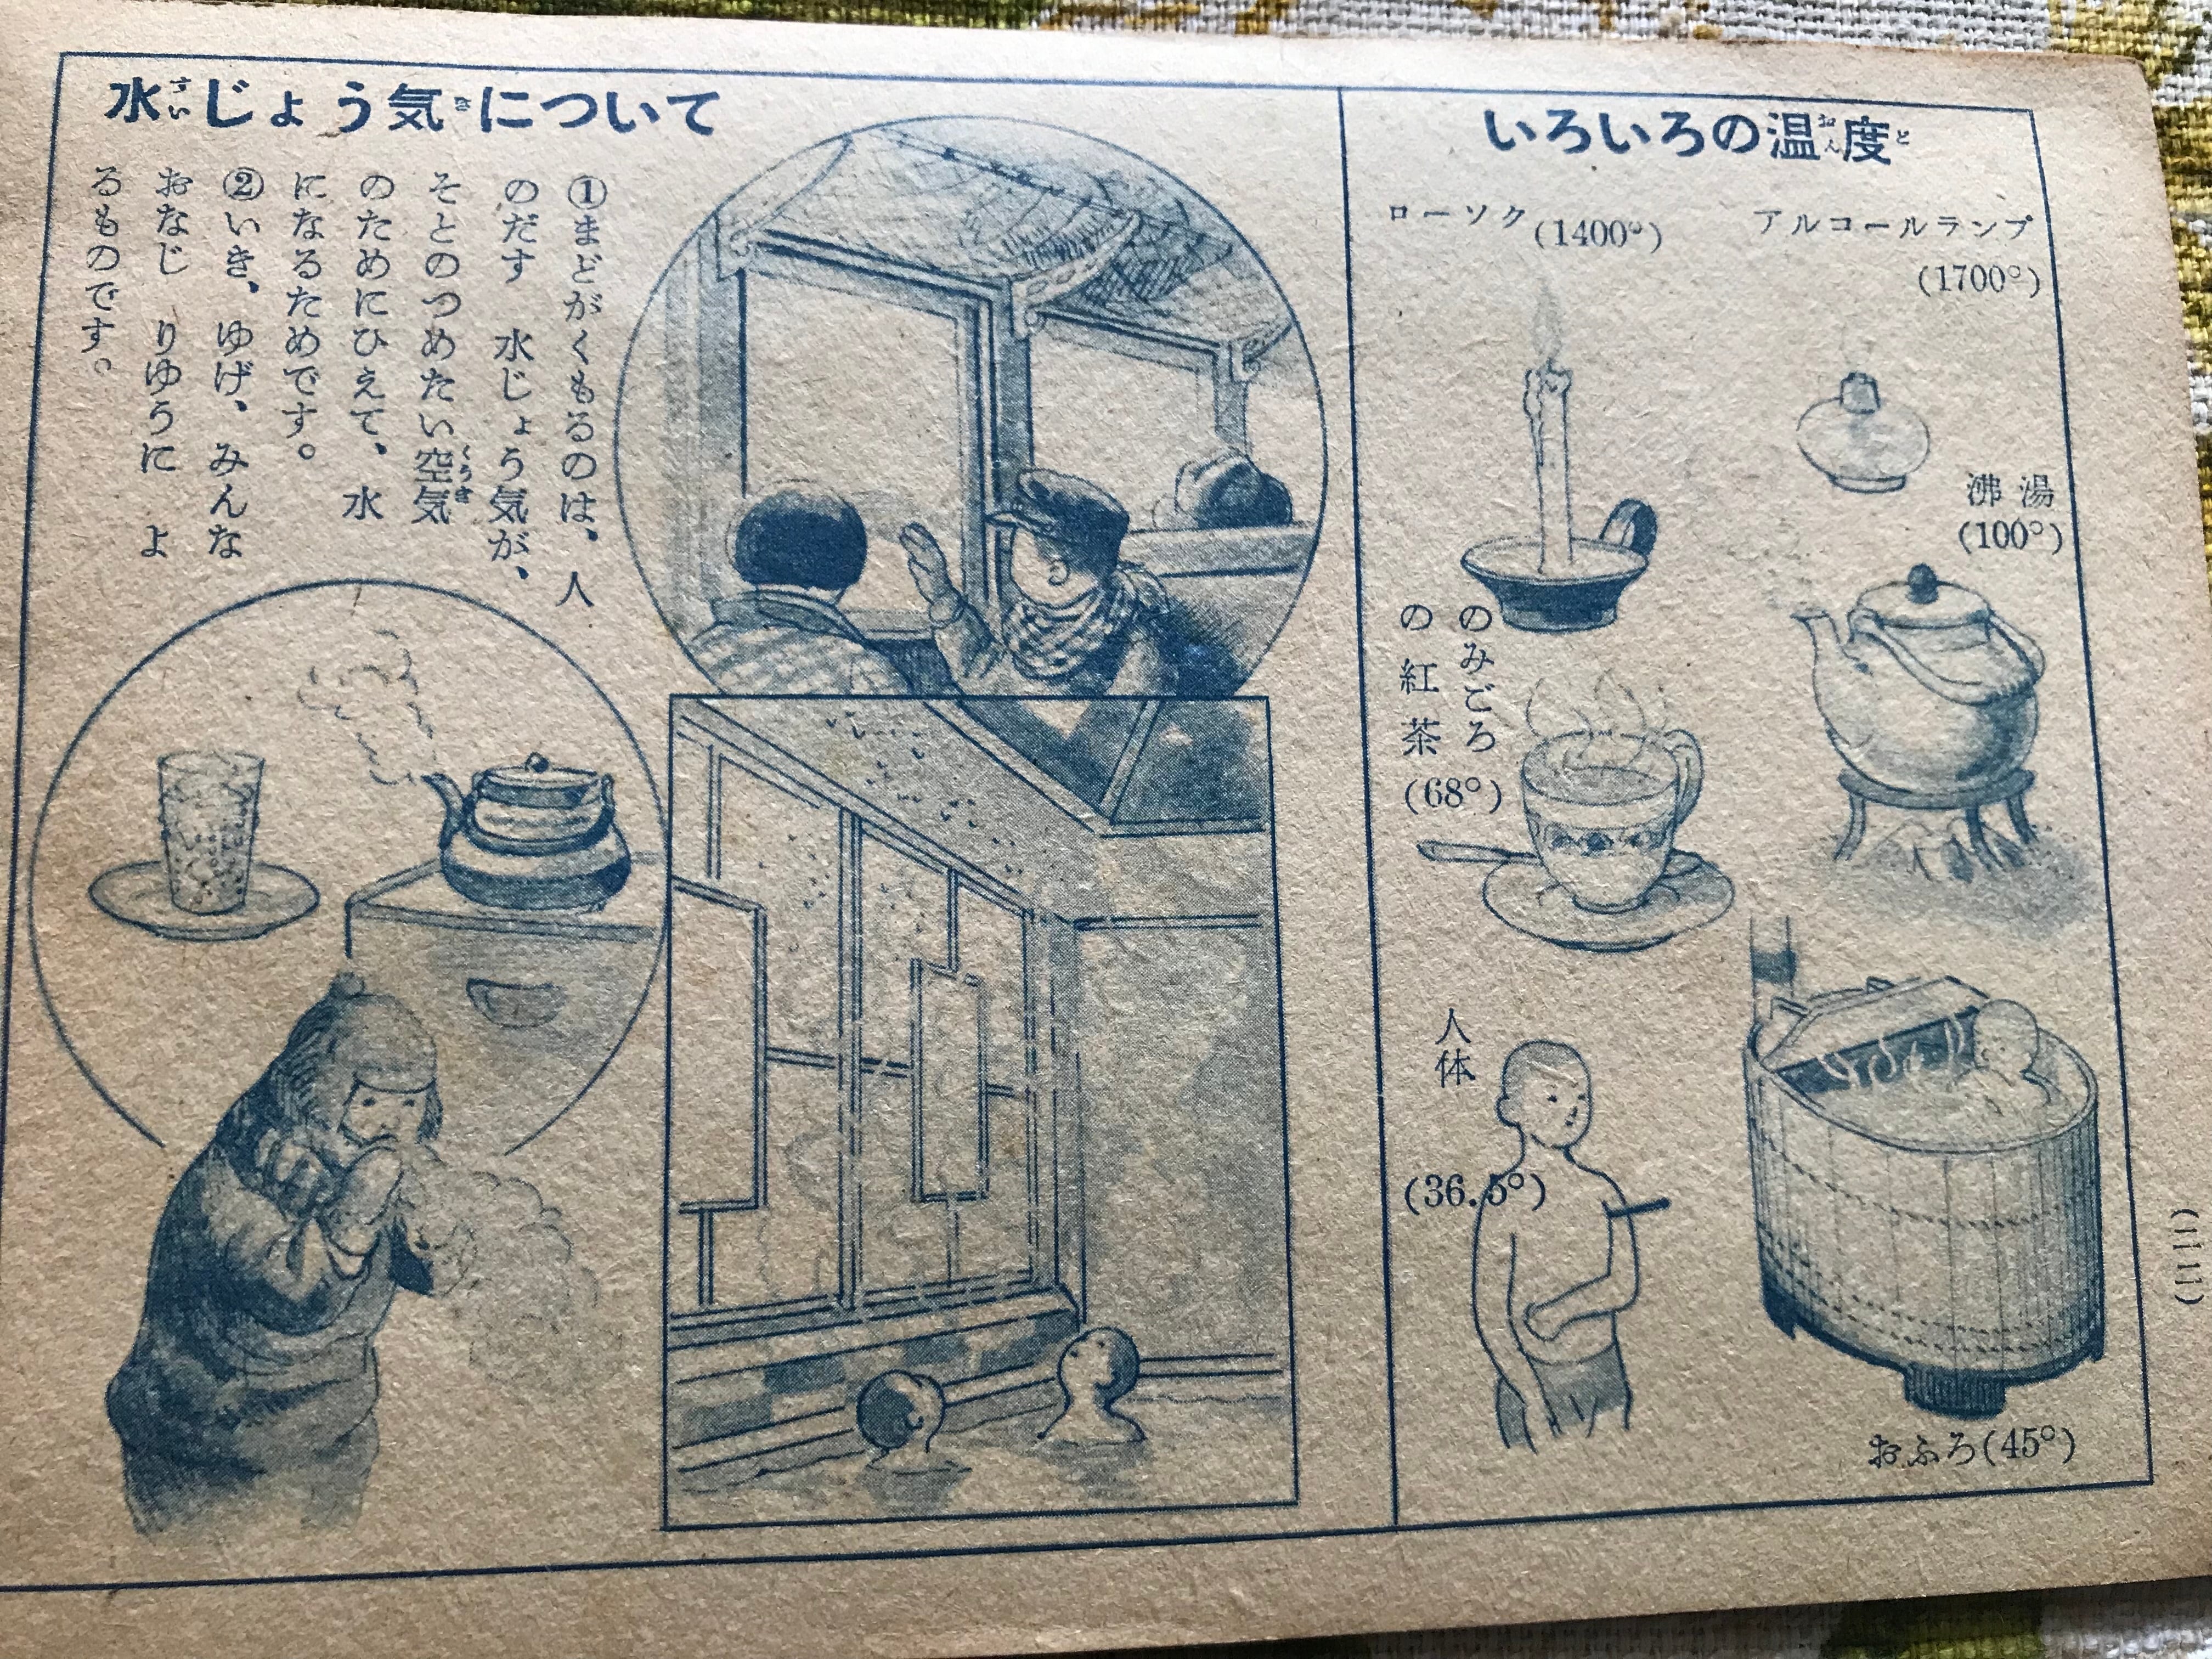 水じょう気について
すい
き
①まどがくもるのは、人
のだす 水じょう気が、
そとのつめたい空気
くうき
のためにひえて、水
になるためです。
②いき、ゆげ、みんな
おなじ りゆうに よ
るものです。
いろいろの温度
おん
ど
ローソク(1400°)
アルコールランプ
(1700°)
沸湯
(100°)
のみごろ
の紅茶
(68°)
人体
(36.5°)
おふろ(45°)